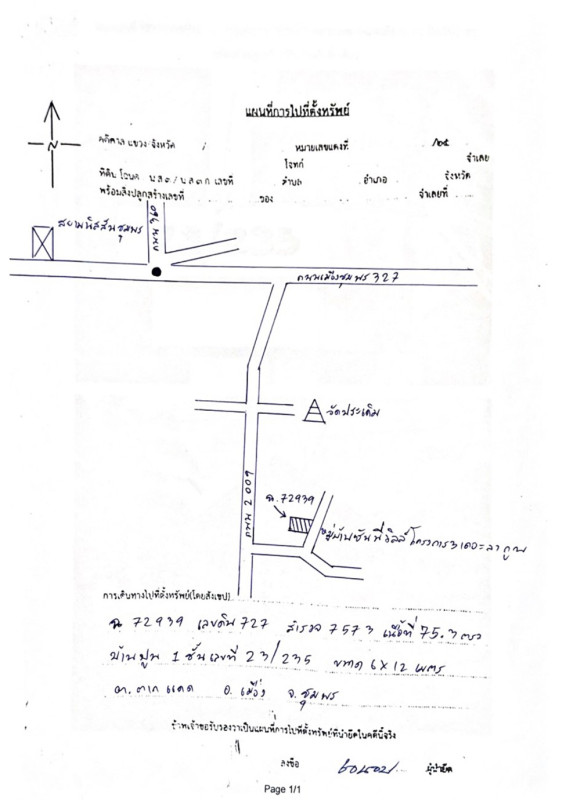 แผนที่การไปที่ตั้งทรัพย์
คดีศาล แขวง/จังหวัด / หมายเลขแดงที่ /๒๕
โจทก์ จำเลย
ที่ดิน โฉนด น.ส.๓/น.ส.๓ ก. เลขที่ ตำบล อำเภอ จังหวัด
พร้อมสิ่งปลูกสร้างเลขที่ ของ จำเลยที่
สยามนิสสันชุมพร
ถนน
ถนนเมืองชุมพร 327
วัดประเดิม
ถนน 2009
ฉ.72939
หมู่บ้านซันนี่วิลล์ โครงการ 3
การเดินทางไปที่ตั้งทรัพย์(โดยสังเขป)
ฉ 72939 เลขดิน 727 สำรวจ 7573 เนื้อที่ 75.3 ตรว
บ้านปูน 1 ชั้น เลขที่ 23/235 ขนาด 6x12 เมตร
ต.ตากแดด อ.เมือง จ.ชุมพร
ข้าพเจ้าขอรับรองว่าเป็นแผนที่การไปที่ตั้งทรัพย์ที่นำยึดในคดีนี้จริง
ลงชื่อ ผู้นำยึด
Page 1/1